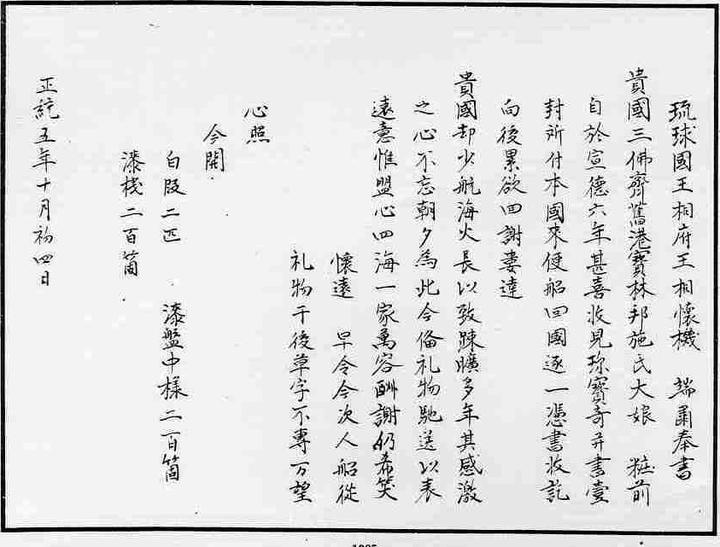 琉球國王相府王相懷機 端肅奉書
貴國三佛齊舊港寶林邦施氏大娘 粧前
自於宣德六年甚喜收見珎寶奇并書壹
封所付本國來使船回國逐一憑書收訖
向後累欲回謝婁達
貴國却少航海火長以致踈曠多年其感激
之心不忘朝夕為此今俻礼物馳送以表
遠意惟盟心四海一家萬容酬謝仍希笑
懷遠 早令今次人船從
礼物于後草字不專万望
心照
今開
白段二匹 漆盤中様二百箇
漆棧二百箇
正統五年十月初四日